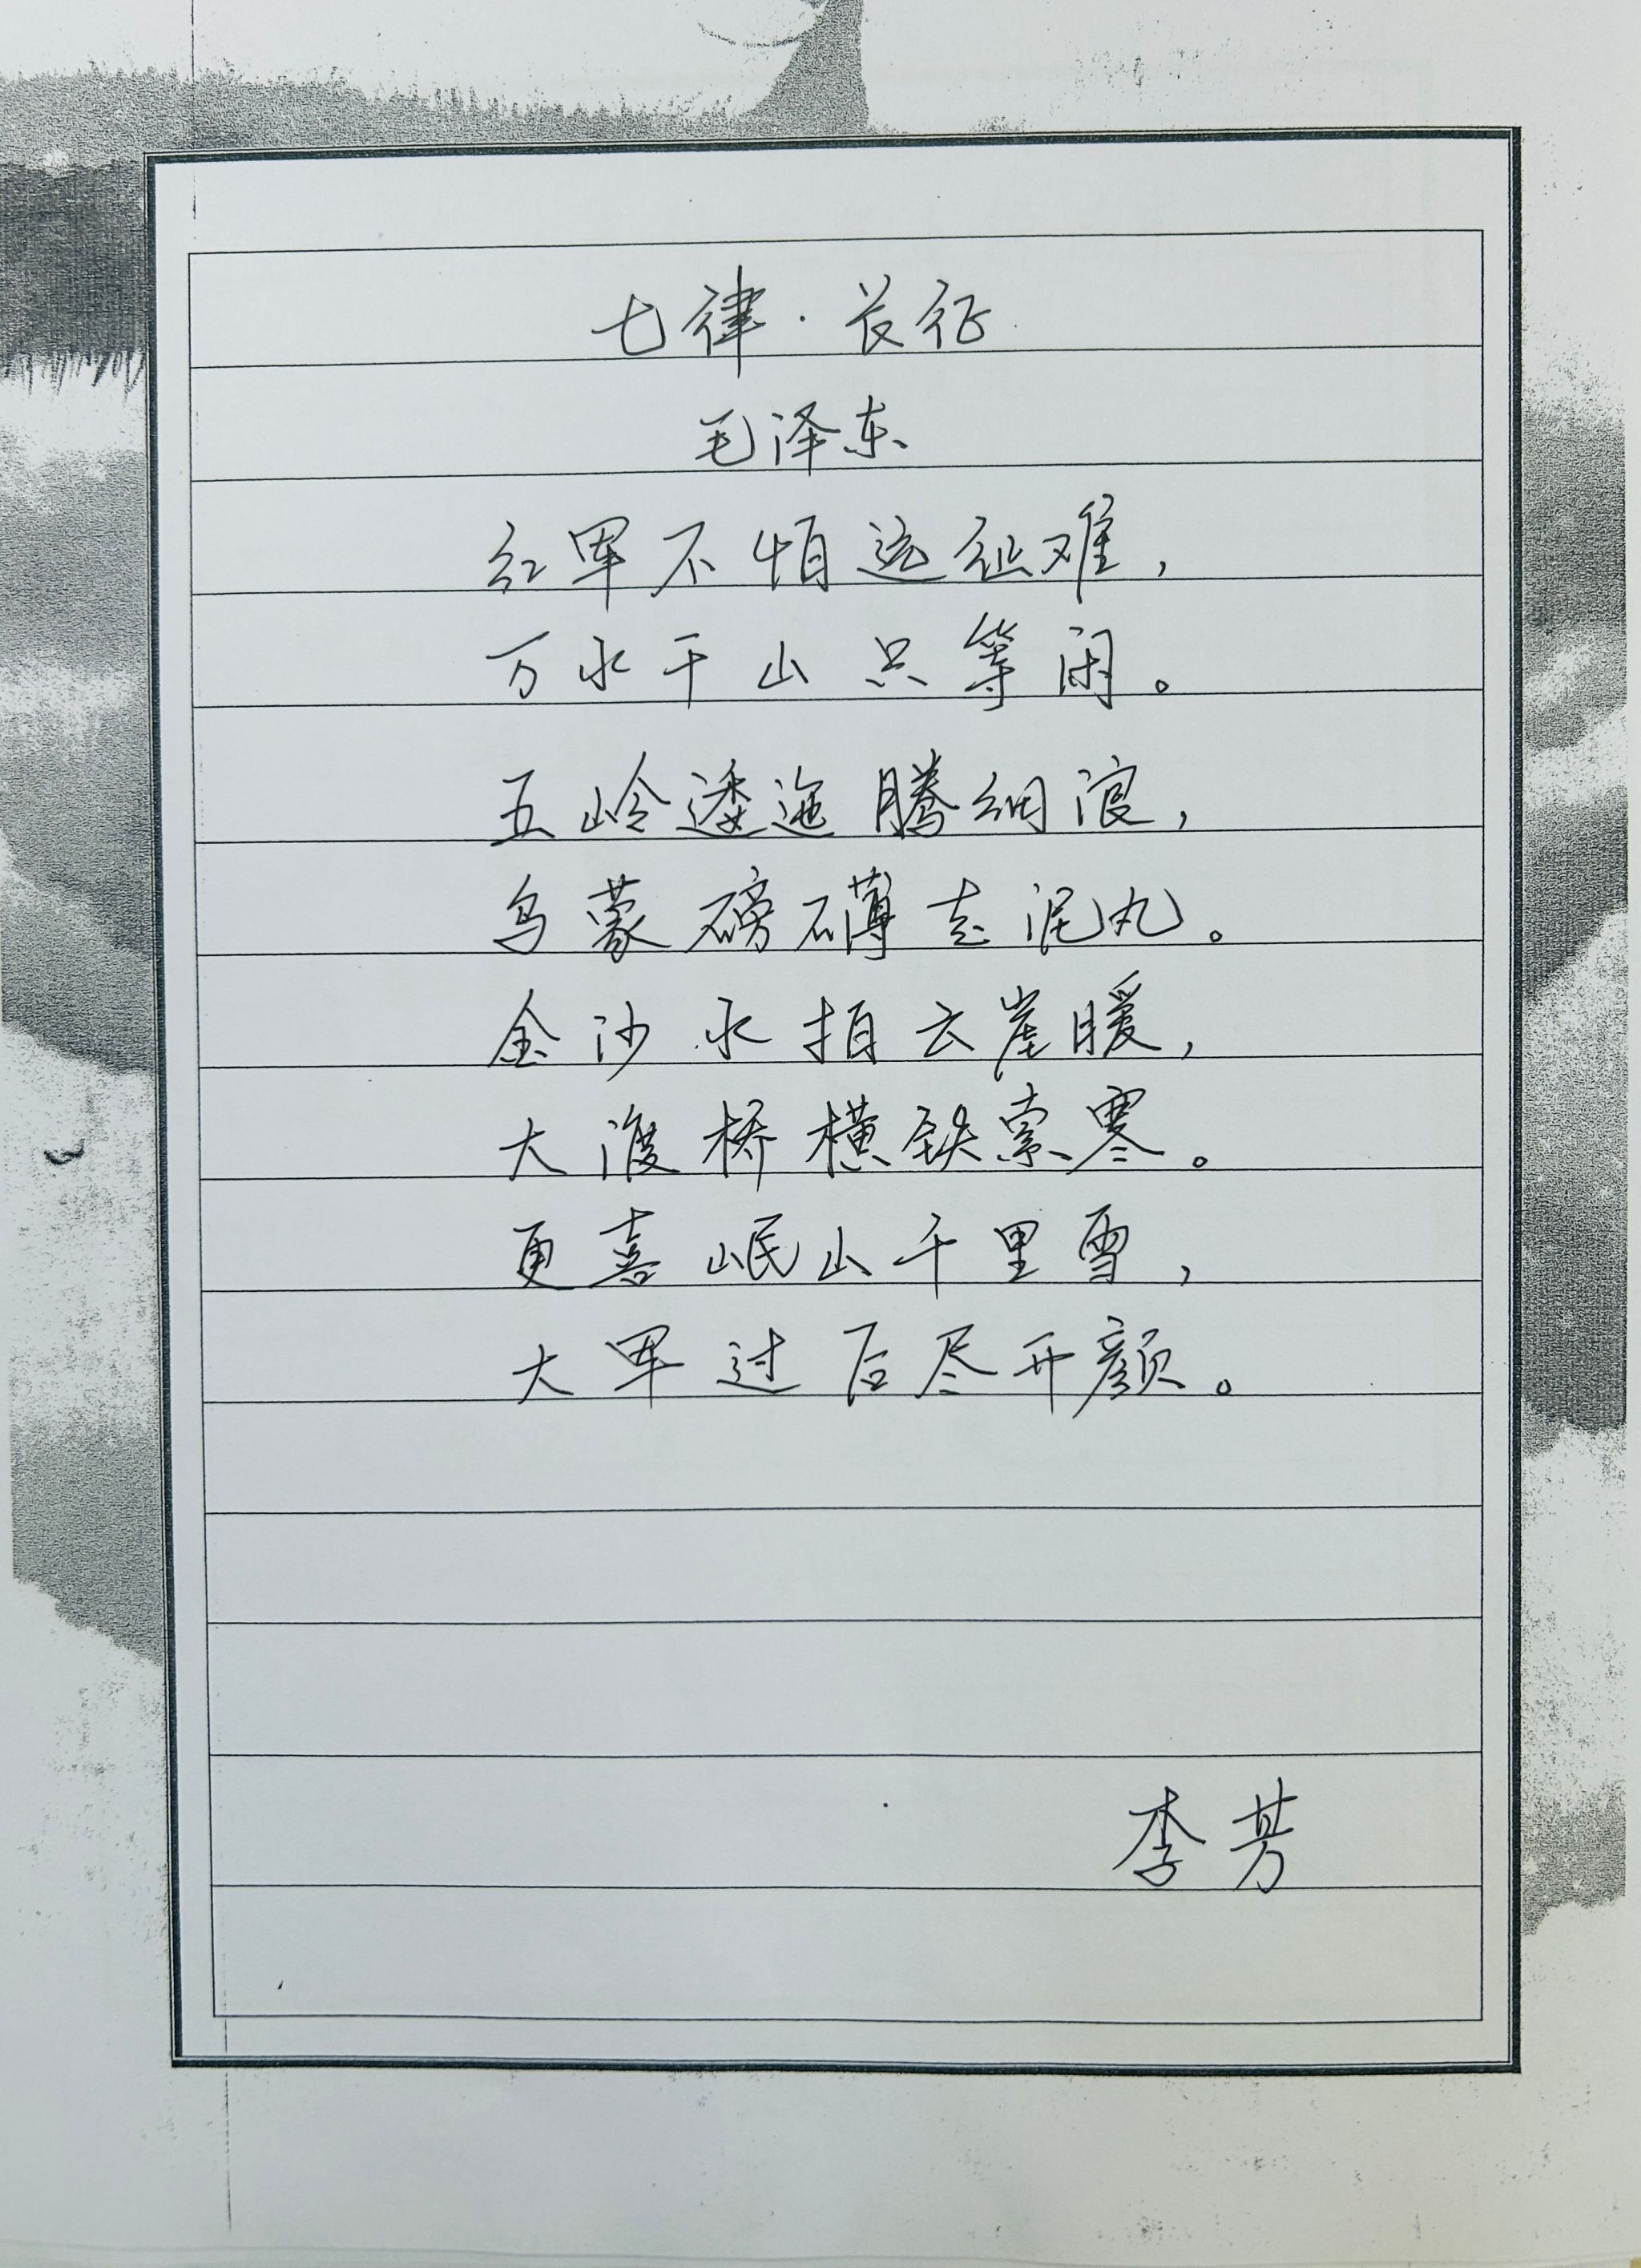 七律·长征
毛泽东
红军不怕远征难，
万水千山只等闲。
五岭逶迤腾细浪，
乌蒙磅礴走泥丸。
金沙水拍云崖暖，
大渡桥横铁索寒。
更喜岷山千里雪，
大军过后尽开颜。
李芳